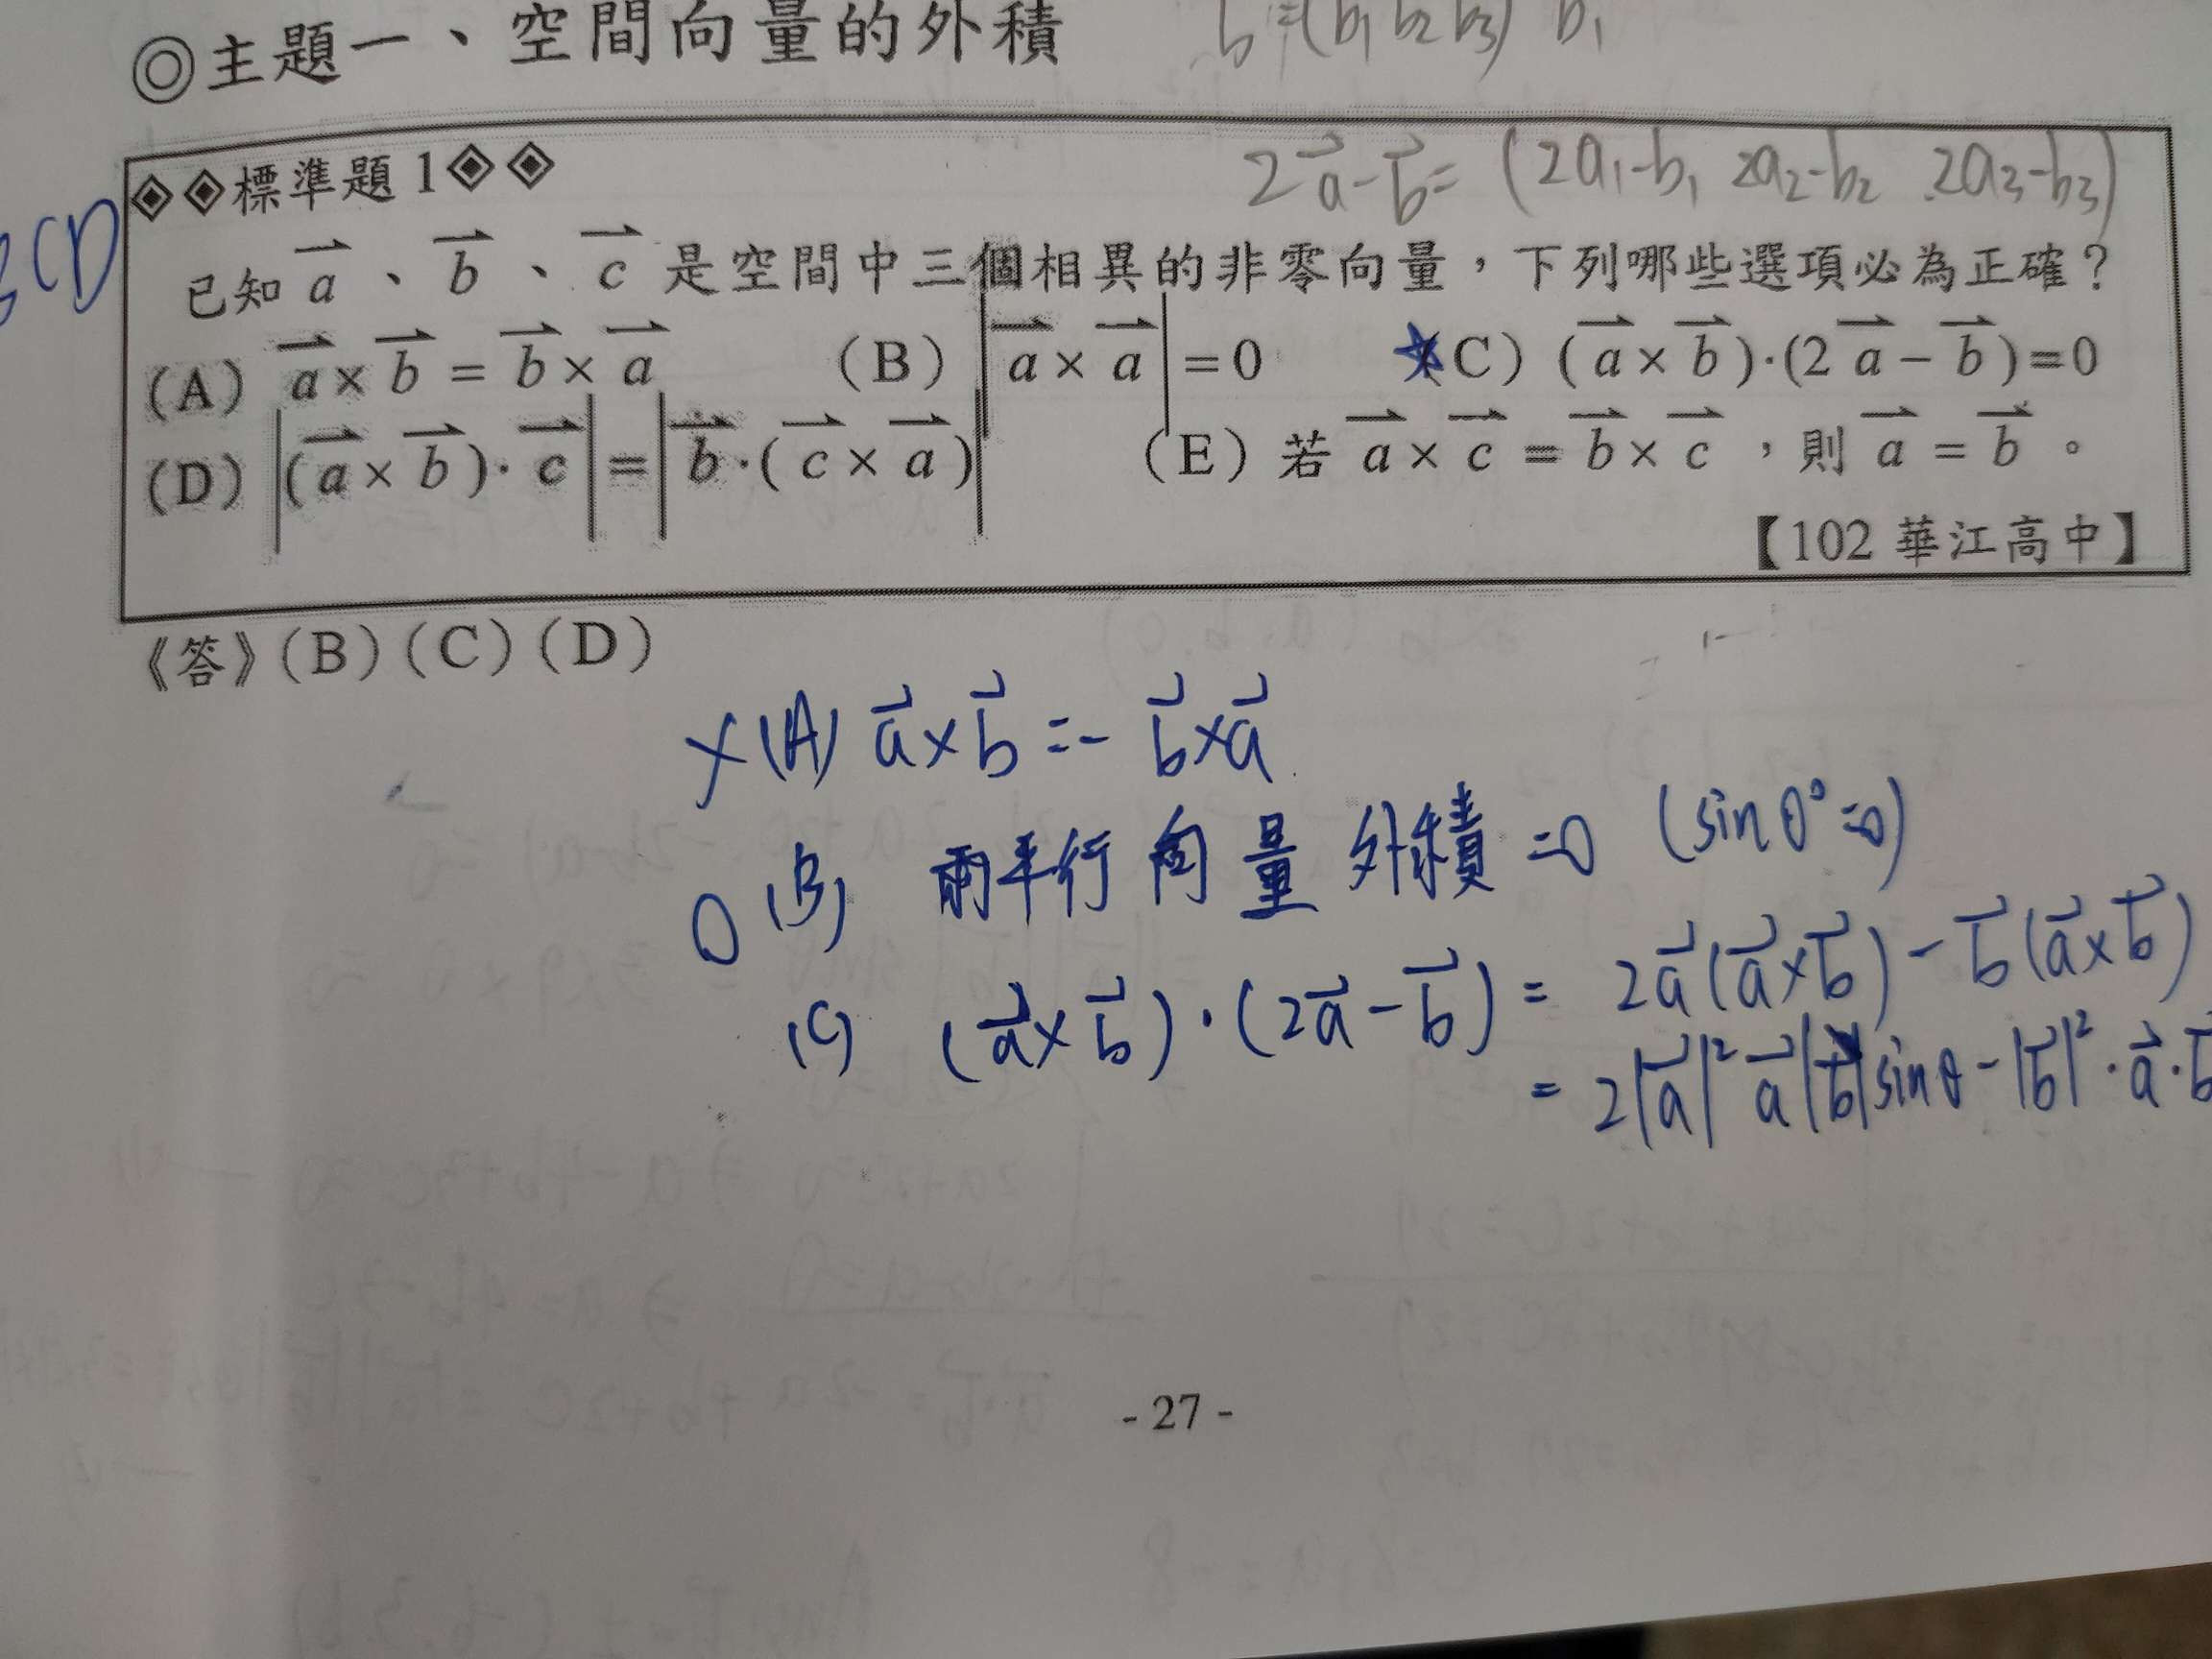 ◎主題一、空間向量的外積
b =(b₁ b₂ b₃) b₁
◈◈標準題 1◈◈
2a⃗-b⃗= (2a₁-b₁ 2a₂-b₂ 2a₃-b₃)
BCD
已知 a⃗、b⃗、c⃗ 是空間中三個相異的非零向量，下列哪些選項必為正確？
(A) a⃗×b⃗=b⃗×a⃗ (B) |a⃗×a⃗|=0 (C) (a⃗×b⃗)·(2a⃗-b⃗)=0
(D) |(a⃗×b⃗)·c⃗|=|b⃗·(c⃗×a⃗)| (E) 若 a⃗×c⃗=b⃗×c⃗，則 a⃗=b⃗。
【102 華江高中】
《答》(B)(C)(D)
×(A) a⃗×b⃗=- b⃗×a⃗
O (B) 兩平行向量外積=0 (sin0°=0)
(C) (a⃗×b⃗)·(2a⃗-b⃗) = 2a⃗(a⃗×b⃗)-b⃗(a⃗×b⃗)
= 2|a⃗|² a⃗|b⃗|sinθ-|b⃗|²·a⃗·b⃗
- 27 -